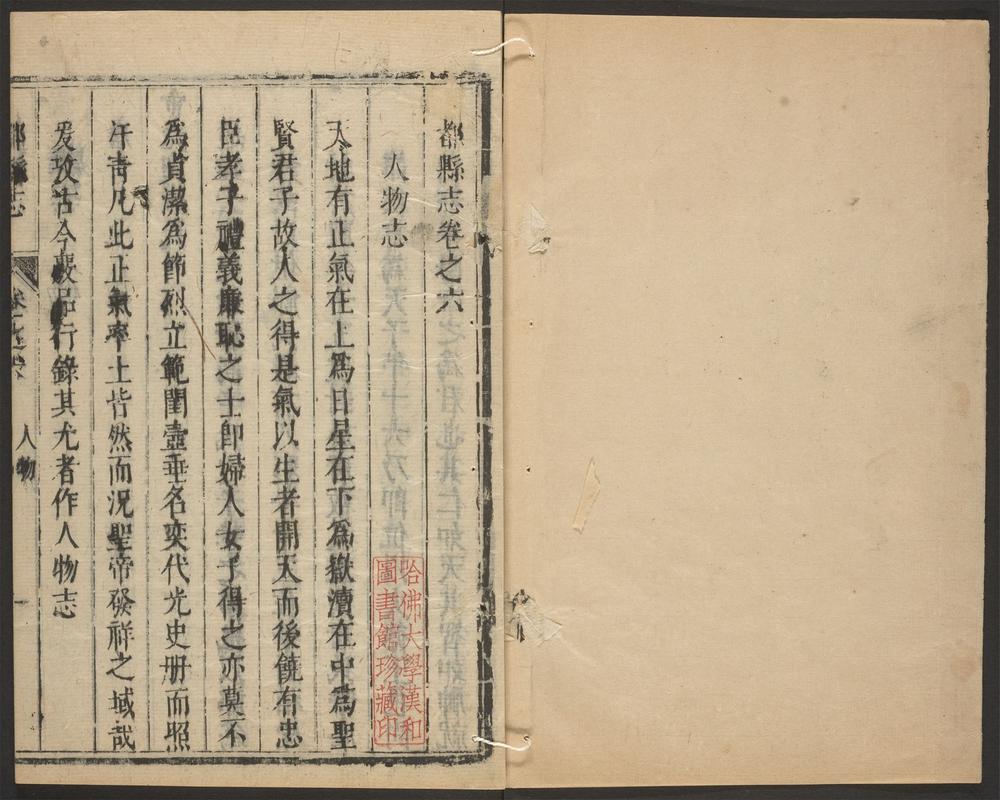 都縣志卷之六
人物志
天地有正氣在上爲日星在下爲嶽瀆在中爲聖
賢君子故人之得是氣以生者開天而後饒有忠
臣孝子禮義廉恥之士卽婦人女子得之亦莫不
爲貞潔爲節烈立範閨壼垂名奕代光史册而照
汗青凡此正氣率土皆然而況聖帝發祥之域哉
爰攷古今覈品行錄其尤者作人物志
縣志
人物
一
哈佛大學漢和
圖書館珍藏印